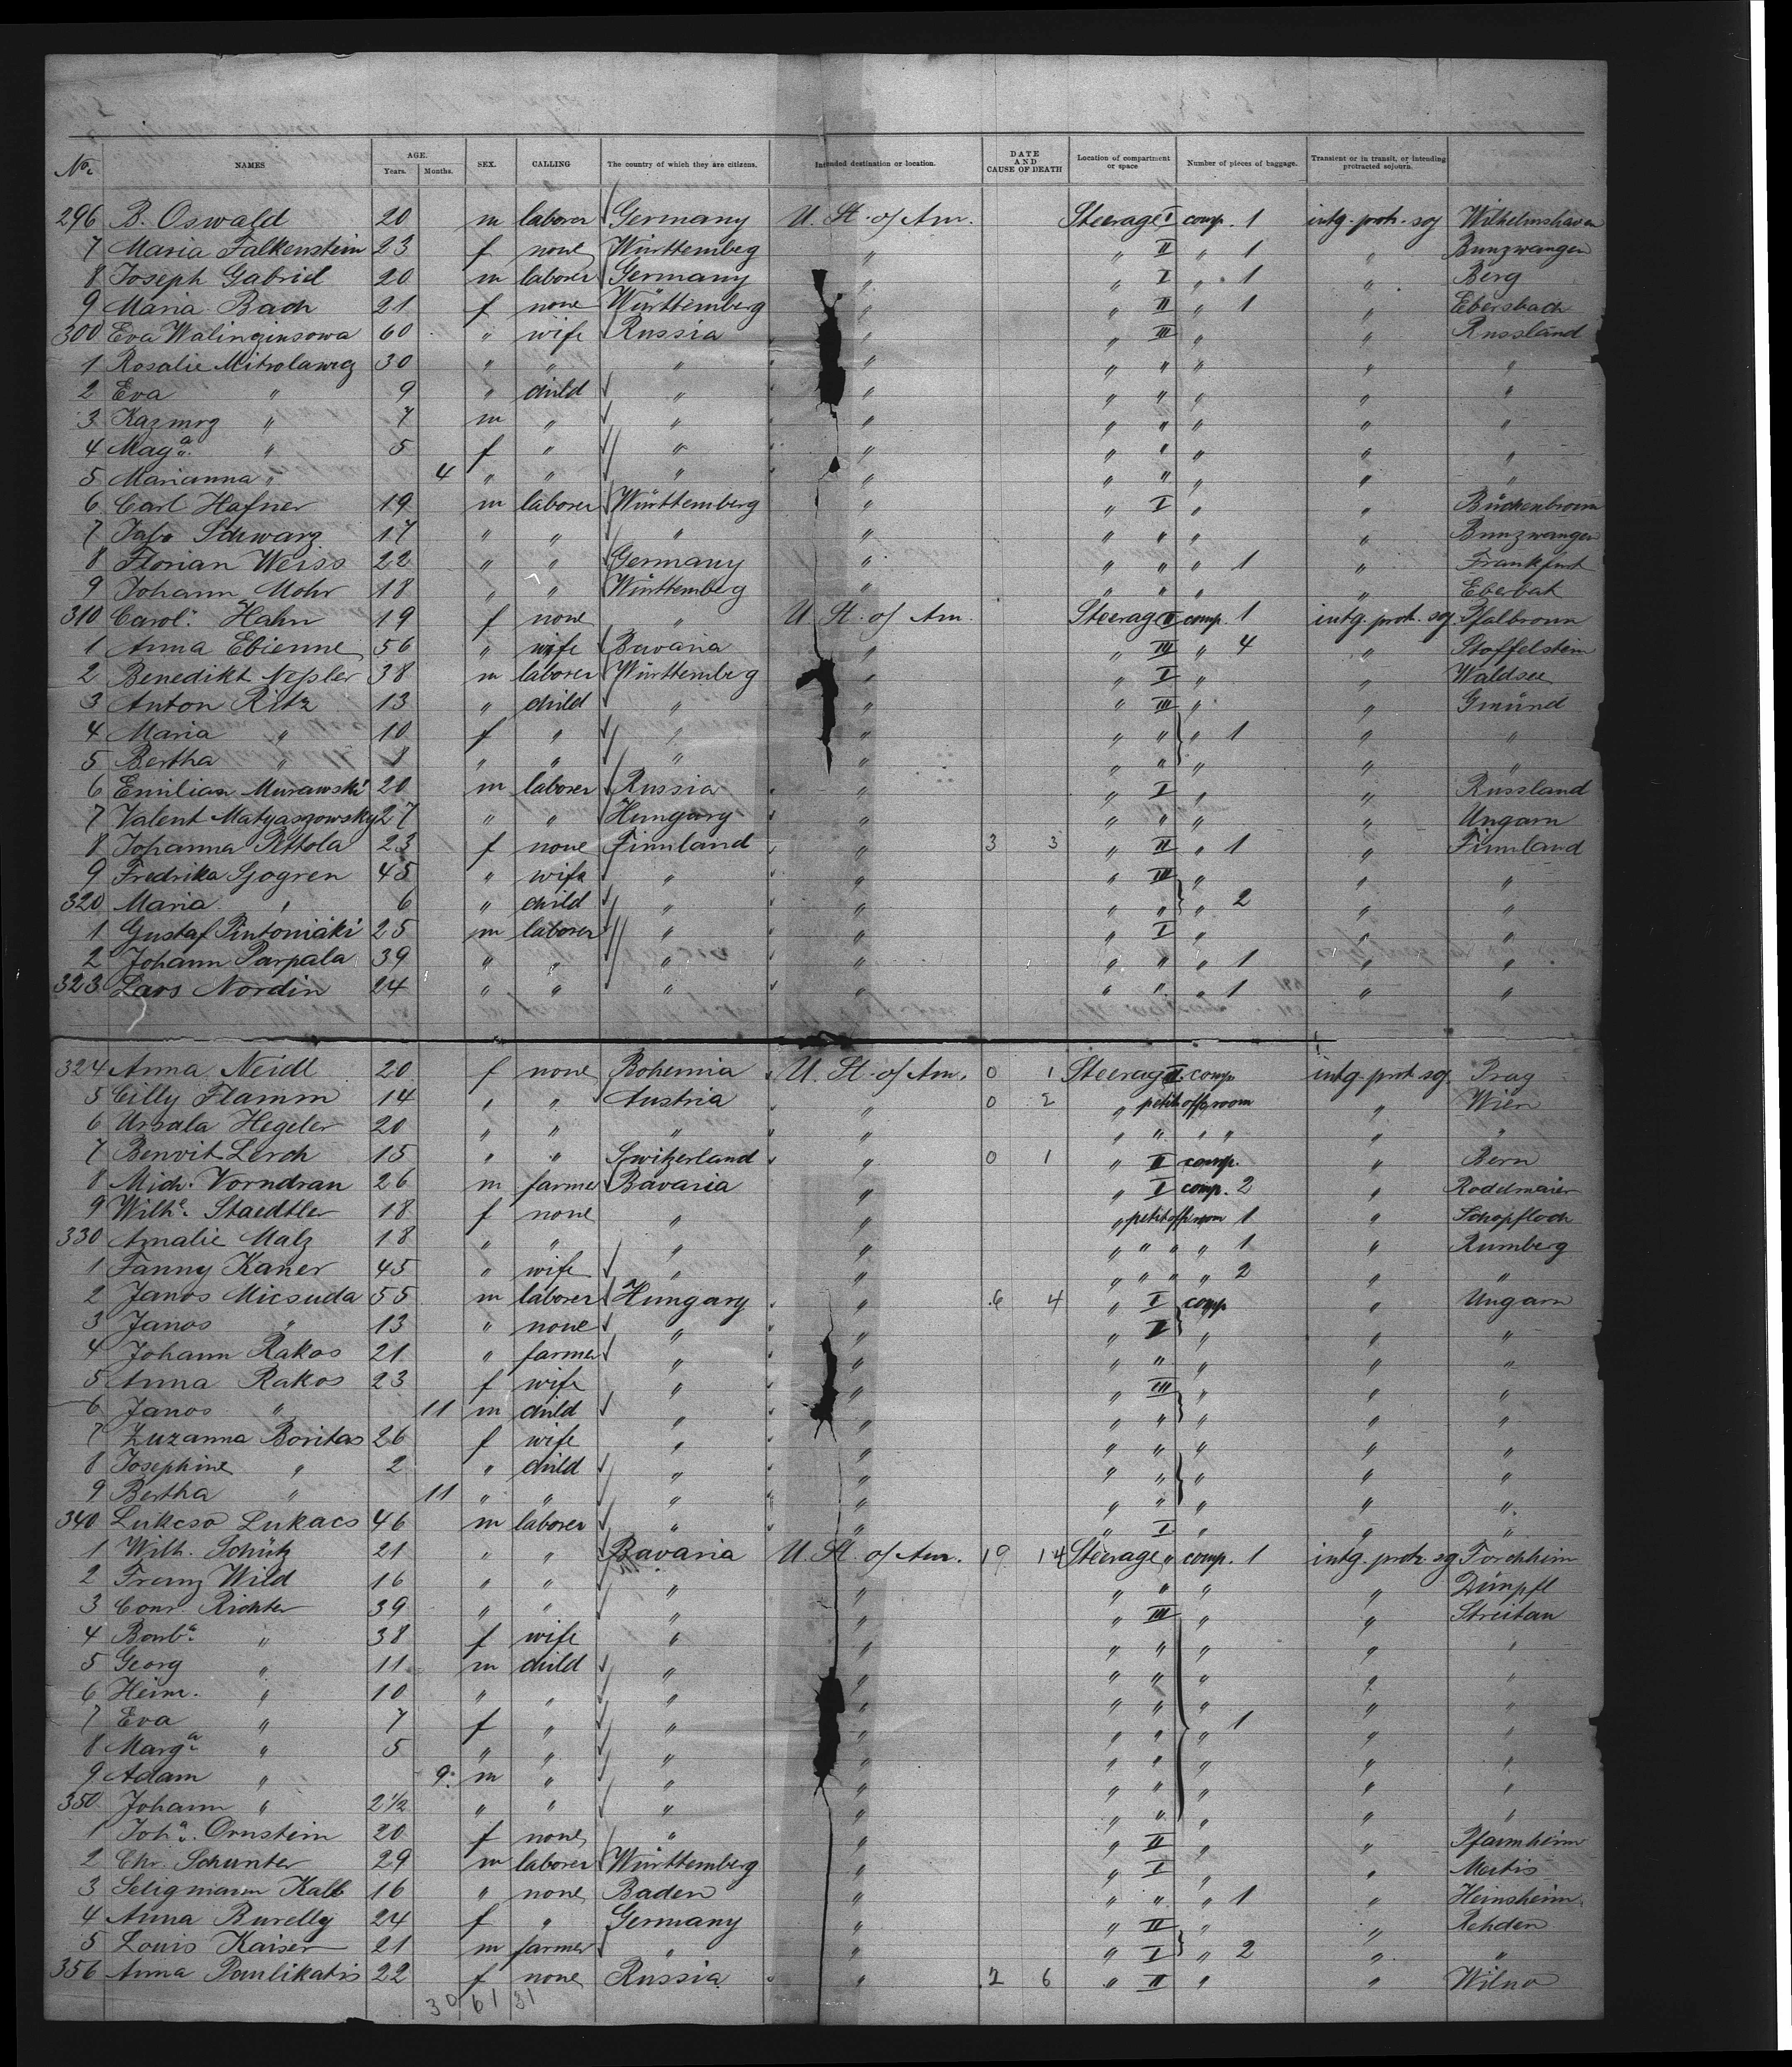 No. NAMES AGE. Years. Months. SEX. CALLING The country of which they are citizens. Intended destination or location. DATE AND CAUSE OF DEATH Location of compartment or space Number of pieces of baggage. Transient or in transit, or intending protracted sojourn.
296 B. Oswald 20 m laborer Germany U. St. of Am. Steerage I comp. 1 intg. protr. soj Wilhelmshaven
7 Maria Falkenstein 23 f none Württemberg " " II " 1 " Bunzwangen
8 Joseph Gabriel 20 m laborer Germany " " I " 1 " Berg
9 Maria Bach 21 f none Württemberg " " II " 1 " Ebersbach
300 Eva Walinginsowa 60 " wife Russia " " III " " Russland
1 Rosalie Mitrolawicz 30 " " " " " " " " "
2 Eva " 9 " child " " " " " " "
3 Kazmrz " 7 m " " " " " " " "
4 Maga. " 5 f " " " " " " " "
5 Marianna " 4 " " " " " " " " "
6 Carl Hafner 19 m laborer Württemberg " " I " " Büchenbronn
7 Jafo Schwarz 17 " " " " " " " " Bunzwangen
8 Florian Weiss 22 " " Germany " " " " 1 " Frankfurt
9 Johann Mohr 18 " " Württemberg " " " " " Eberbach
310 Carol. Hahn 19 f none " U St. of Am. Steerage II comp. 1 intg. protr. soj. Pfalbronn
1 Anna Ebienne 56 " wife Bavaria " " III " 4 " Stoffelstein
2 Benedikt Nessler 38 m laborer Württemberg " " I " " Waldsee
3 Anton Ritz 13 " child " " " III " " Gmünd
4 Maria " 10 f " " " " " " 1 " "
5 Bertha " 8 " " " " " " " " "
6 Emilian Murawski 20 m laborer Russia " " I " " Russland
7 Valent Matyaszowsky 27 " " Hungary " " " " " Ungarn
8 Johanna Pettola 23 f none Finnland " 3 3 " II " 1 " Finnland
9 Fredrika Sjogren 45 " wife " " " III " " "
320 Maria " 6 " child " " " " " 2 " "
1 Gustaf Pintomäki 25 m laborer " " " I " " "
2 Johann Parpala 39 " " " " " " " 1 " "
323 Lars Nordin 24 " " " " " " " 1 " "
324 Anna Neidl 20 f none Bohemia U. St. of Am. 0 1 Steerage II comp intg. prot. soj. Prag
5 Cilly Flamm 14 " " Austria " 0 2 " petit off. room " Wien
6 Ursala Hegeler 20 " " " " " " " " " "
7 Benvit Lerch 15 " " Switzerland " 0 1 " II comp. " Bern
8 Mich. Vorndran 26 m farmer Bavaria " " I comp. 2 " Roddmaier
9 Wilhe. Staedtler 18 f none " " " petit off. room 1 " Schopfloch
330 Amalie Malz 18 " " " " " " " " 1 " Rumberg
1 Fanny Kaner 45 " wife " " " " " " 2 " "
2 Janos Micsuda 55 m laborer Hungary " 6 4 " I comp " Ungarn
3 Janos " 13 " none " " " I " " "
4 Johann Rakos 21 " farmer " " " " " " "
5 Anna Rakos 23 f wife " " " III " " "
6 Janos " 11 m child " " " " " " "
7 Zuzanna Boritas 26 f wife " " " " " " "
8 Josephine " 2 " child " " " " " " "
9 Bertha " 11 " " " " " " " " "
340 Lukcso Lukacs 46 m laborer " " " I " " "
1 Wilh. Schütz 21 " " Bavaria U. St. of Am. 19 14 Steerage " comp. 1 intg. protr. sg Forchheim
2 Franz Wild 16 " " " " " " " " Dümpfl
3 Conr. Richter 39 " " " " " III " " Streitau
4 Barba. " 38 f wife " " " " " " "
5 Georg " 11 m child " " " " " " "
6 Heinr. " 10 " " " " " " " " "
7 Eva " 7 f " " " " " " 1 " "
8 Marga. " 5 " " " " " " " " "
9 Adam " 9 m " " " " " " " "
350 Johann " 2 1/2 " " " " " " " " "
1 Joha. Ornstein 20 f none " " " II " " Pfarmheim
2 Chr. Schunter 29 m laborer Württemberg " " I " " Mertis
3 Seligmann Kalb 16 " none Baden " " " " 1 " Heinsheim
4 Anna Burelly 24 f " Germany " " II " " Rehden
5 Louis Kaiser 21 m farmer " " " I " 2 " "
356 Anna Paulikatis 22 f none Russia " 2 6 " II " " Wilno
30 61 31